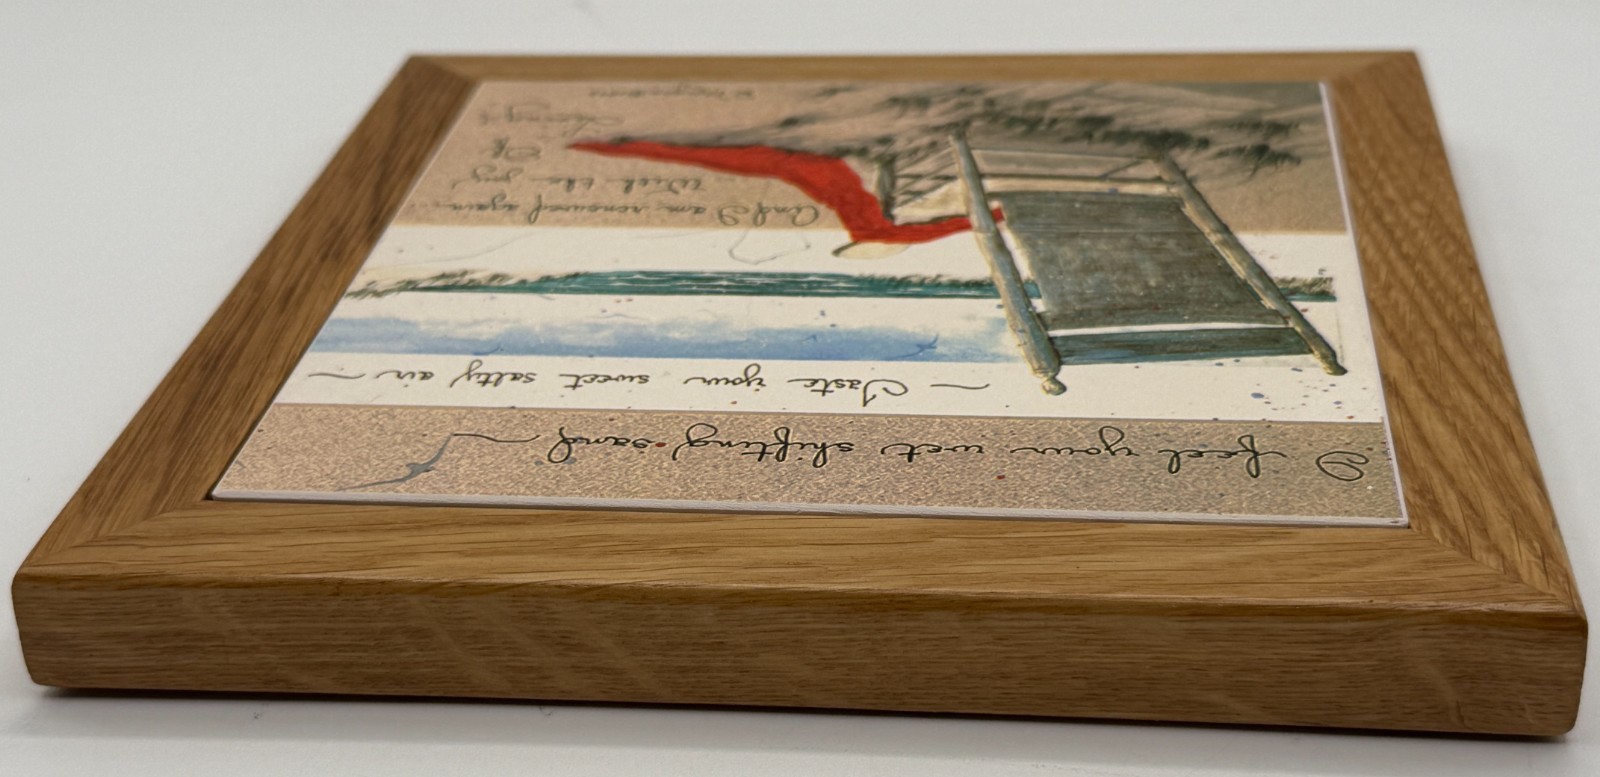 I feel your wet shifting sand ~
~ Taste your sweet salty air ~
And I am renewed again
~ With the joy
Of
Living!